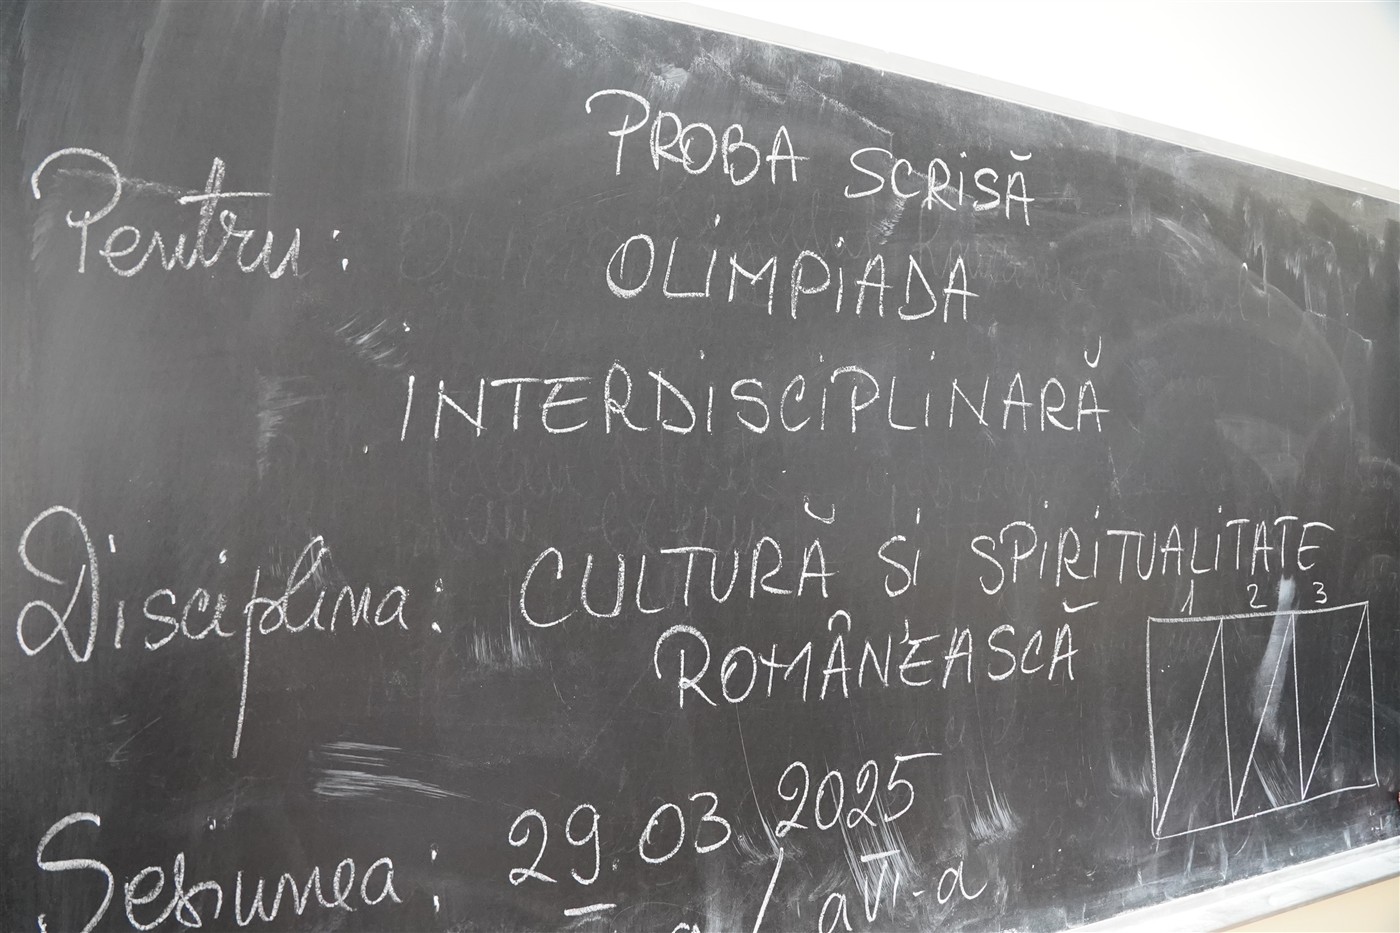 Pentru: PROBA SCRISĂ
OLIMPIADA
INTERDISCIPLINARĂ
Disciplina: CULTURĂ SI SPIRITUALITATE
ROMÂNEASCĂ
1 2 3
Sesiunea: 29.03.2025
a / a VI-a